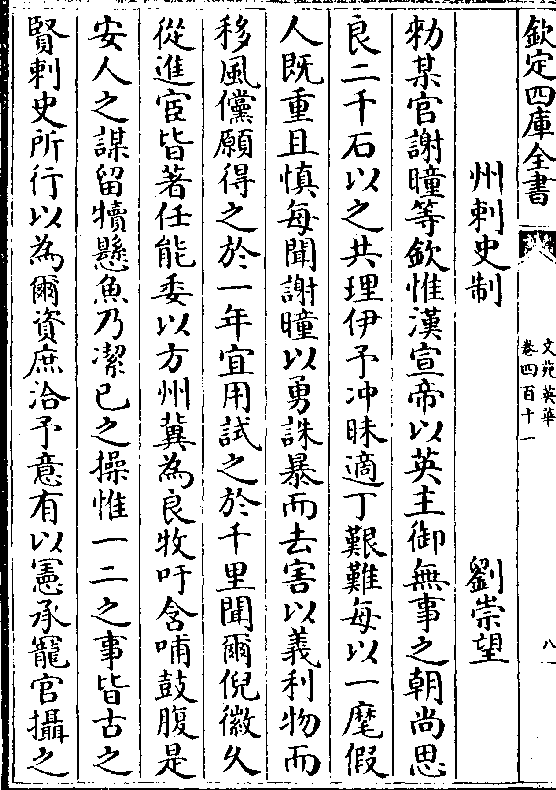 欽定四庫全書
文苑英華
卷四百十一
八
州刺史制
劉崇望
勑某官謝曈等欽惟漢宣帝以英主御無事之朝尚思
良二千石以之共理伊予冲昧適丁艱難每以一麾假
人既重且慎每聞謝曈以勇誅暴而去害以義利物而
移風儻願得之於一年宜用試之於千里聞爾倪徽久
從進宦皆著任能委以方州冀為良牧吁含哺鼓腹是
安人之謀留犢懸魚乃潔已之操惟一二之事皆古之
賢刺史所行以為爾資庶洽予意有以憲承寵官攝之